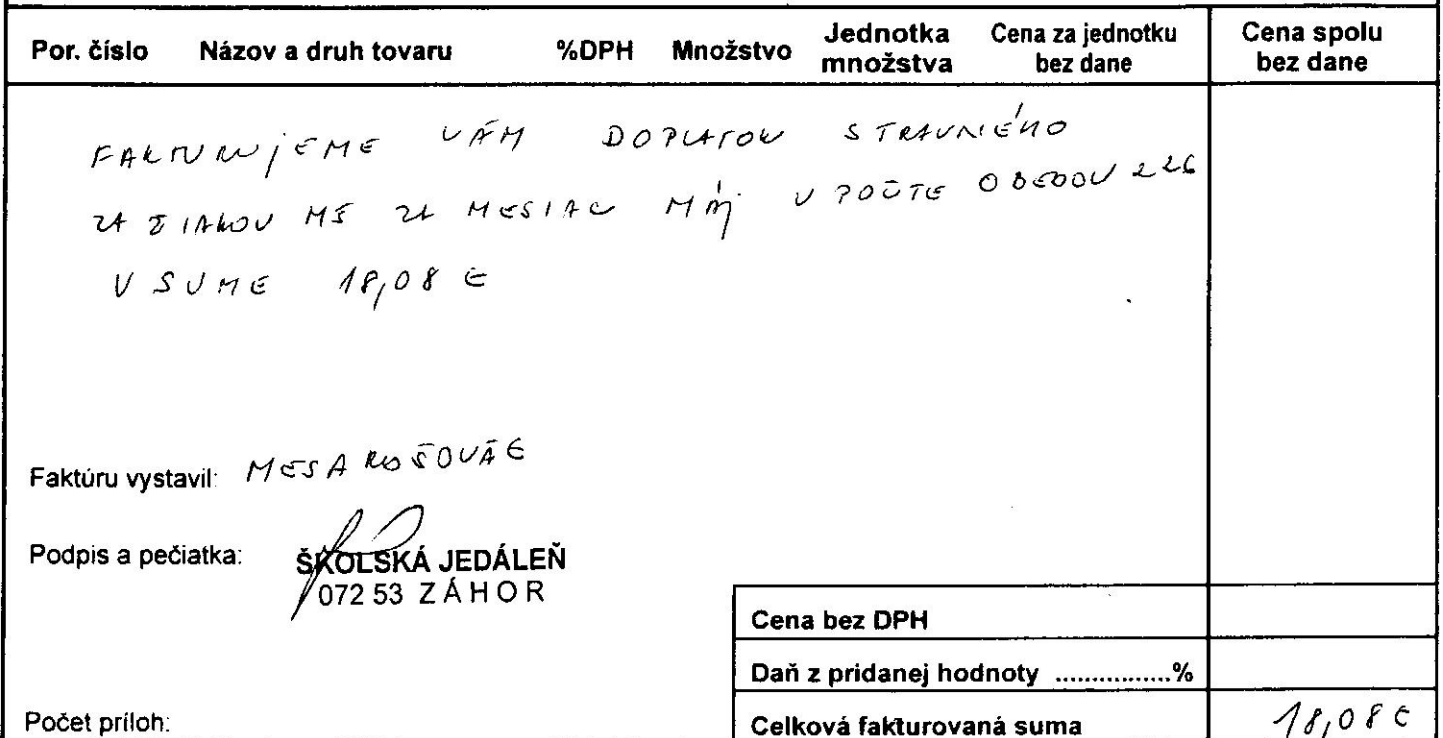 Por. číslo Názov a druh tovaru %DPH Množstvo Jednotka množstva Cena za jednotku bez dane Cena spolu bez dane
FAKTURUJEME VÁM DOPLATOK STRAVNÉHO
ZA ŽIAKOV MŠ ZA MESIAC MÁJ V POČTE OBEDOV 226
V SUME 18,08 €
Faktúru vystavil: MESAROŠOVÁ E
Podpis a pečiatka: ŠKOLSKÁ JEDÁLEŇ
072 53 ZÁHOR
Cena bez DPH
Daň z pridanej hodnoty ................%
Počet príloh:
Celková fakturovaná suma 18,08 €